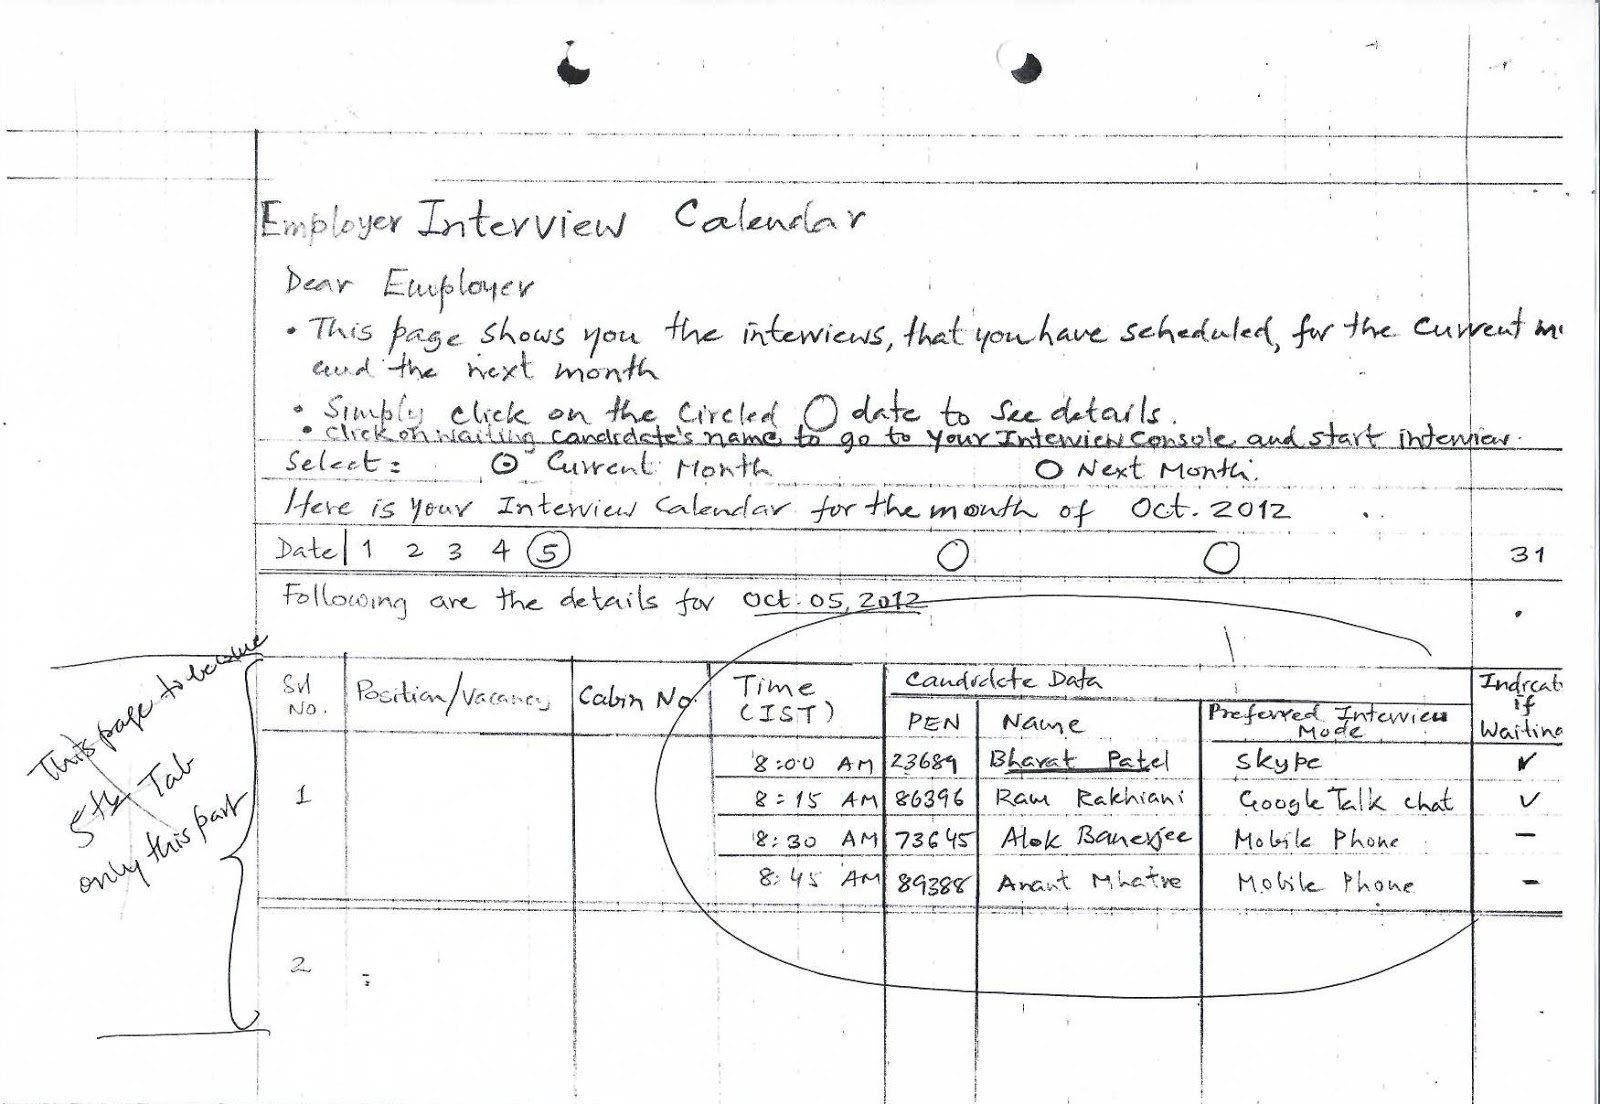 Employer Interview Calendar
Dear Employer
• This page shows you the interviews, that you have scheduled, for the current
and the next month
• Simply click on the circled date to see details.
• Click on waiting candidate's name to go to your Interview Console and start interview.
Select: Current Month Next Month.
Here is your Interview Calendar for the month of Oct. 2012
Date 1 2 3 4 5 31
Following are the details for Oct. 05, 2012
This page to become
5th Tab
only this part
Srl No. Position/Vacancy Cabin No. Time (IST) Candidate Data Indicate if Waiting
PEN Name Preferred Interview Mode
1
8:00 AM 23689 Bharat Patel Skype ✓
8:15 AM 86396 Ram Rakhiani Google Talk chat ✓
8:30 AM 73645 Alok Banerjee Mobile Phone –
8:45 AM 89388 Anant Mhatre Mobile Phone –
2 :